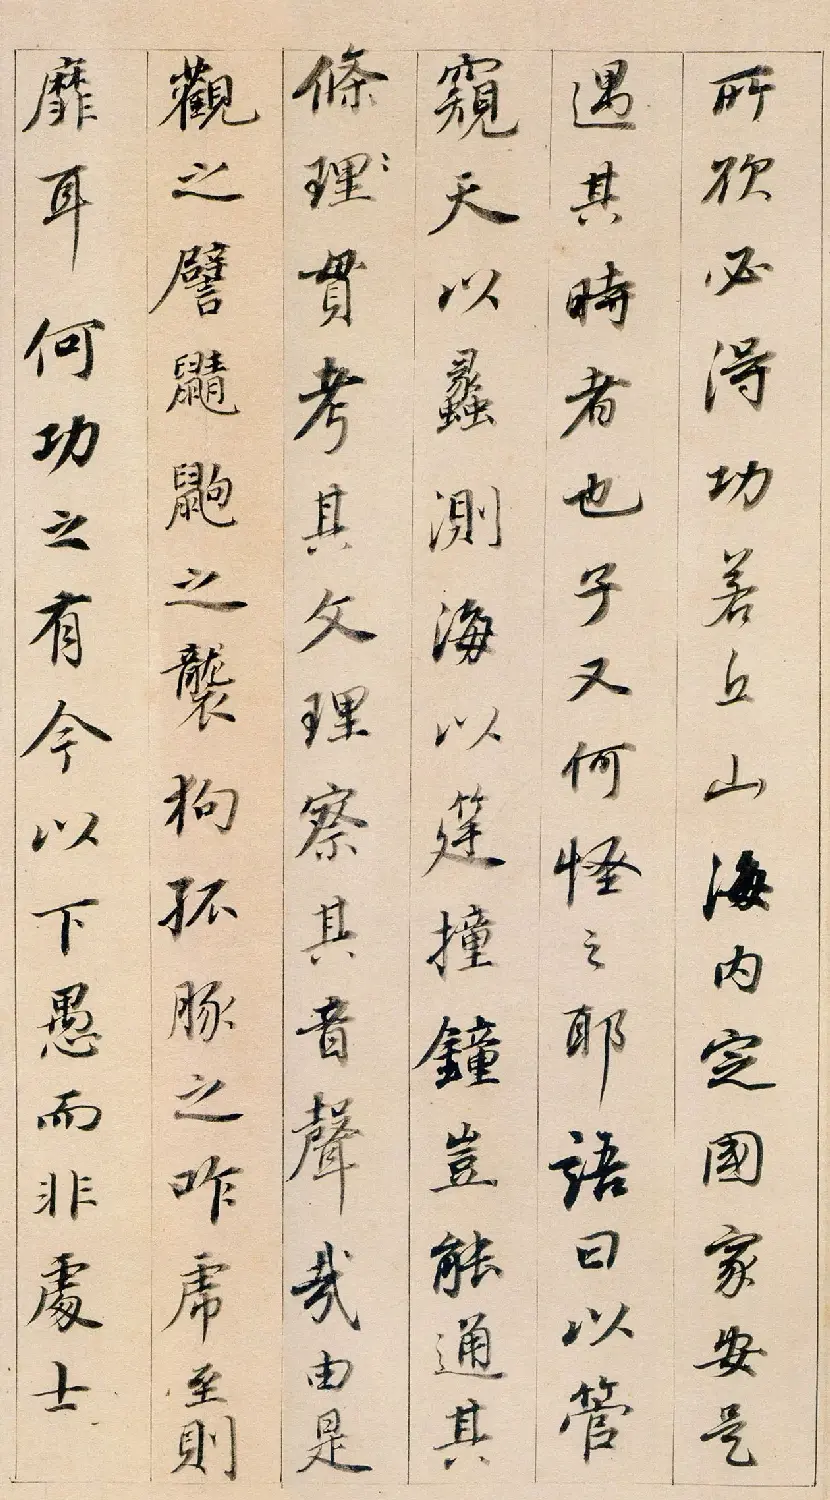 所欲必得功若丘山海内定國家安是
遇其時者也子又何怪之耶語曰以管
窺天以蠡測海以筳撞鐘豈能通其
條理貫考其文理察其音聲哉由是
觀之譬鼱鼩之襲狗孤豚之咋虎至則
靡耳何功之有今以下愚而非處士